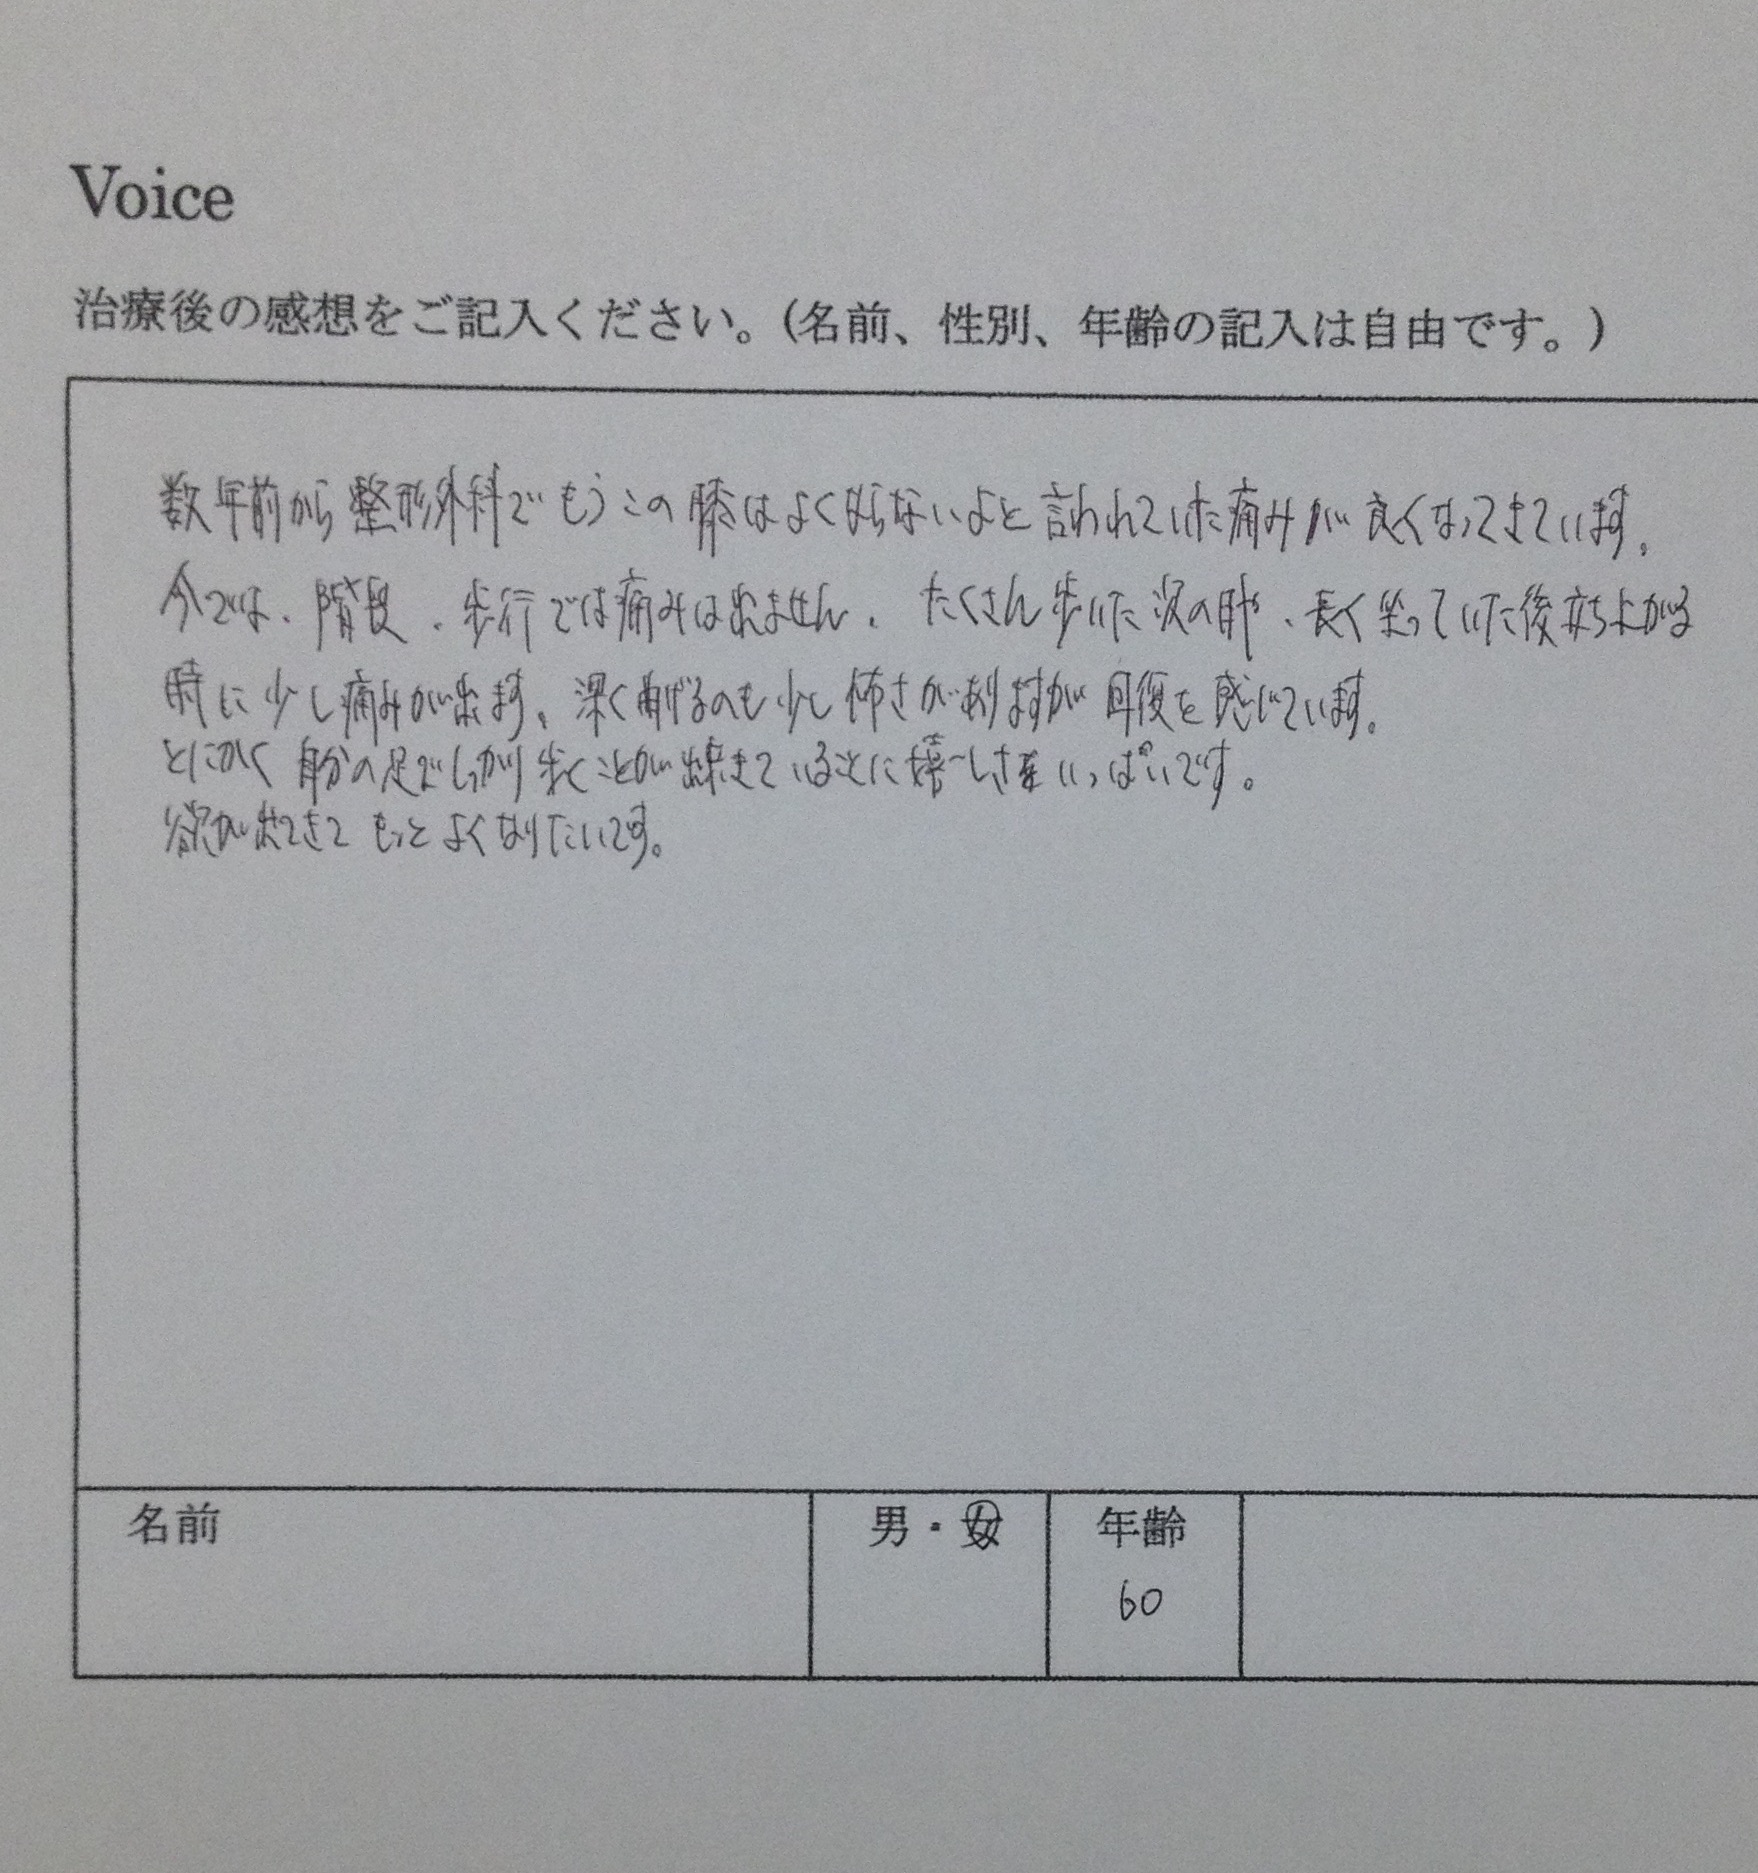 Voice
治療後の感想をご記入ください。(名前、性別、年齢の記入は自由です。)
数年前から整形外科でもうこの膝はよくならないよと言われていた痛みが良くなってきています。
今では、階段、歩行では痛みは出ません。たくさん歩いた次の日や、長く坐っていた後立ち上がる
時に少し痛みが出ます。深く曲げるのも少し怖さがありますが回復を感じています。
とにかく自分の足でしっかり歩くことが出来ていることに嬉しさいっぱいです。
欲が出てきてもっとよくなりたいです。
名前 男・女 年齢
60